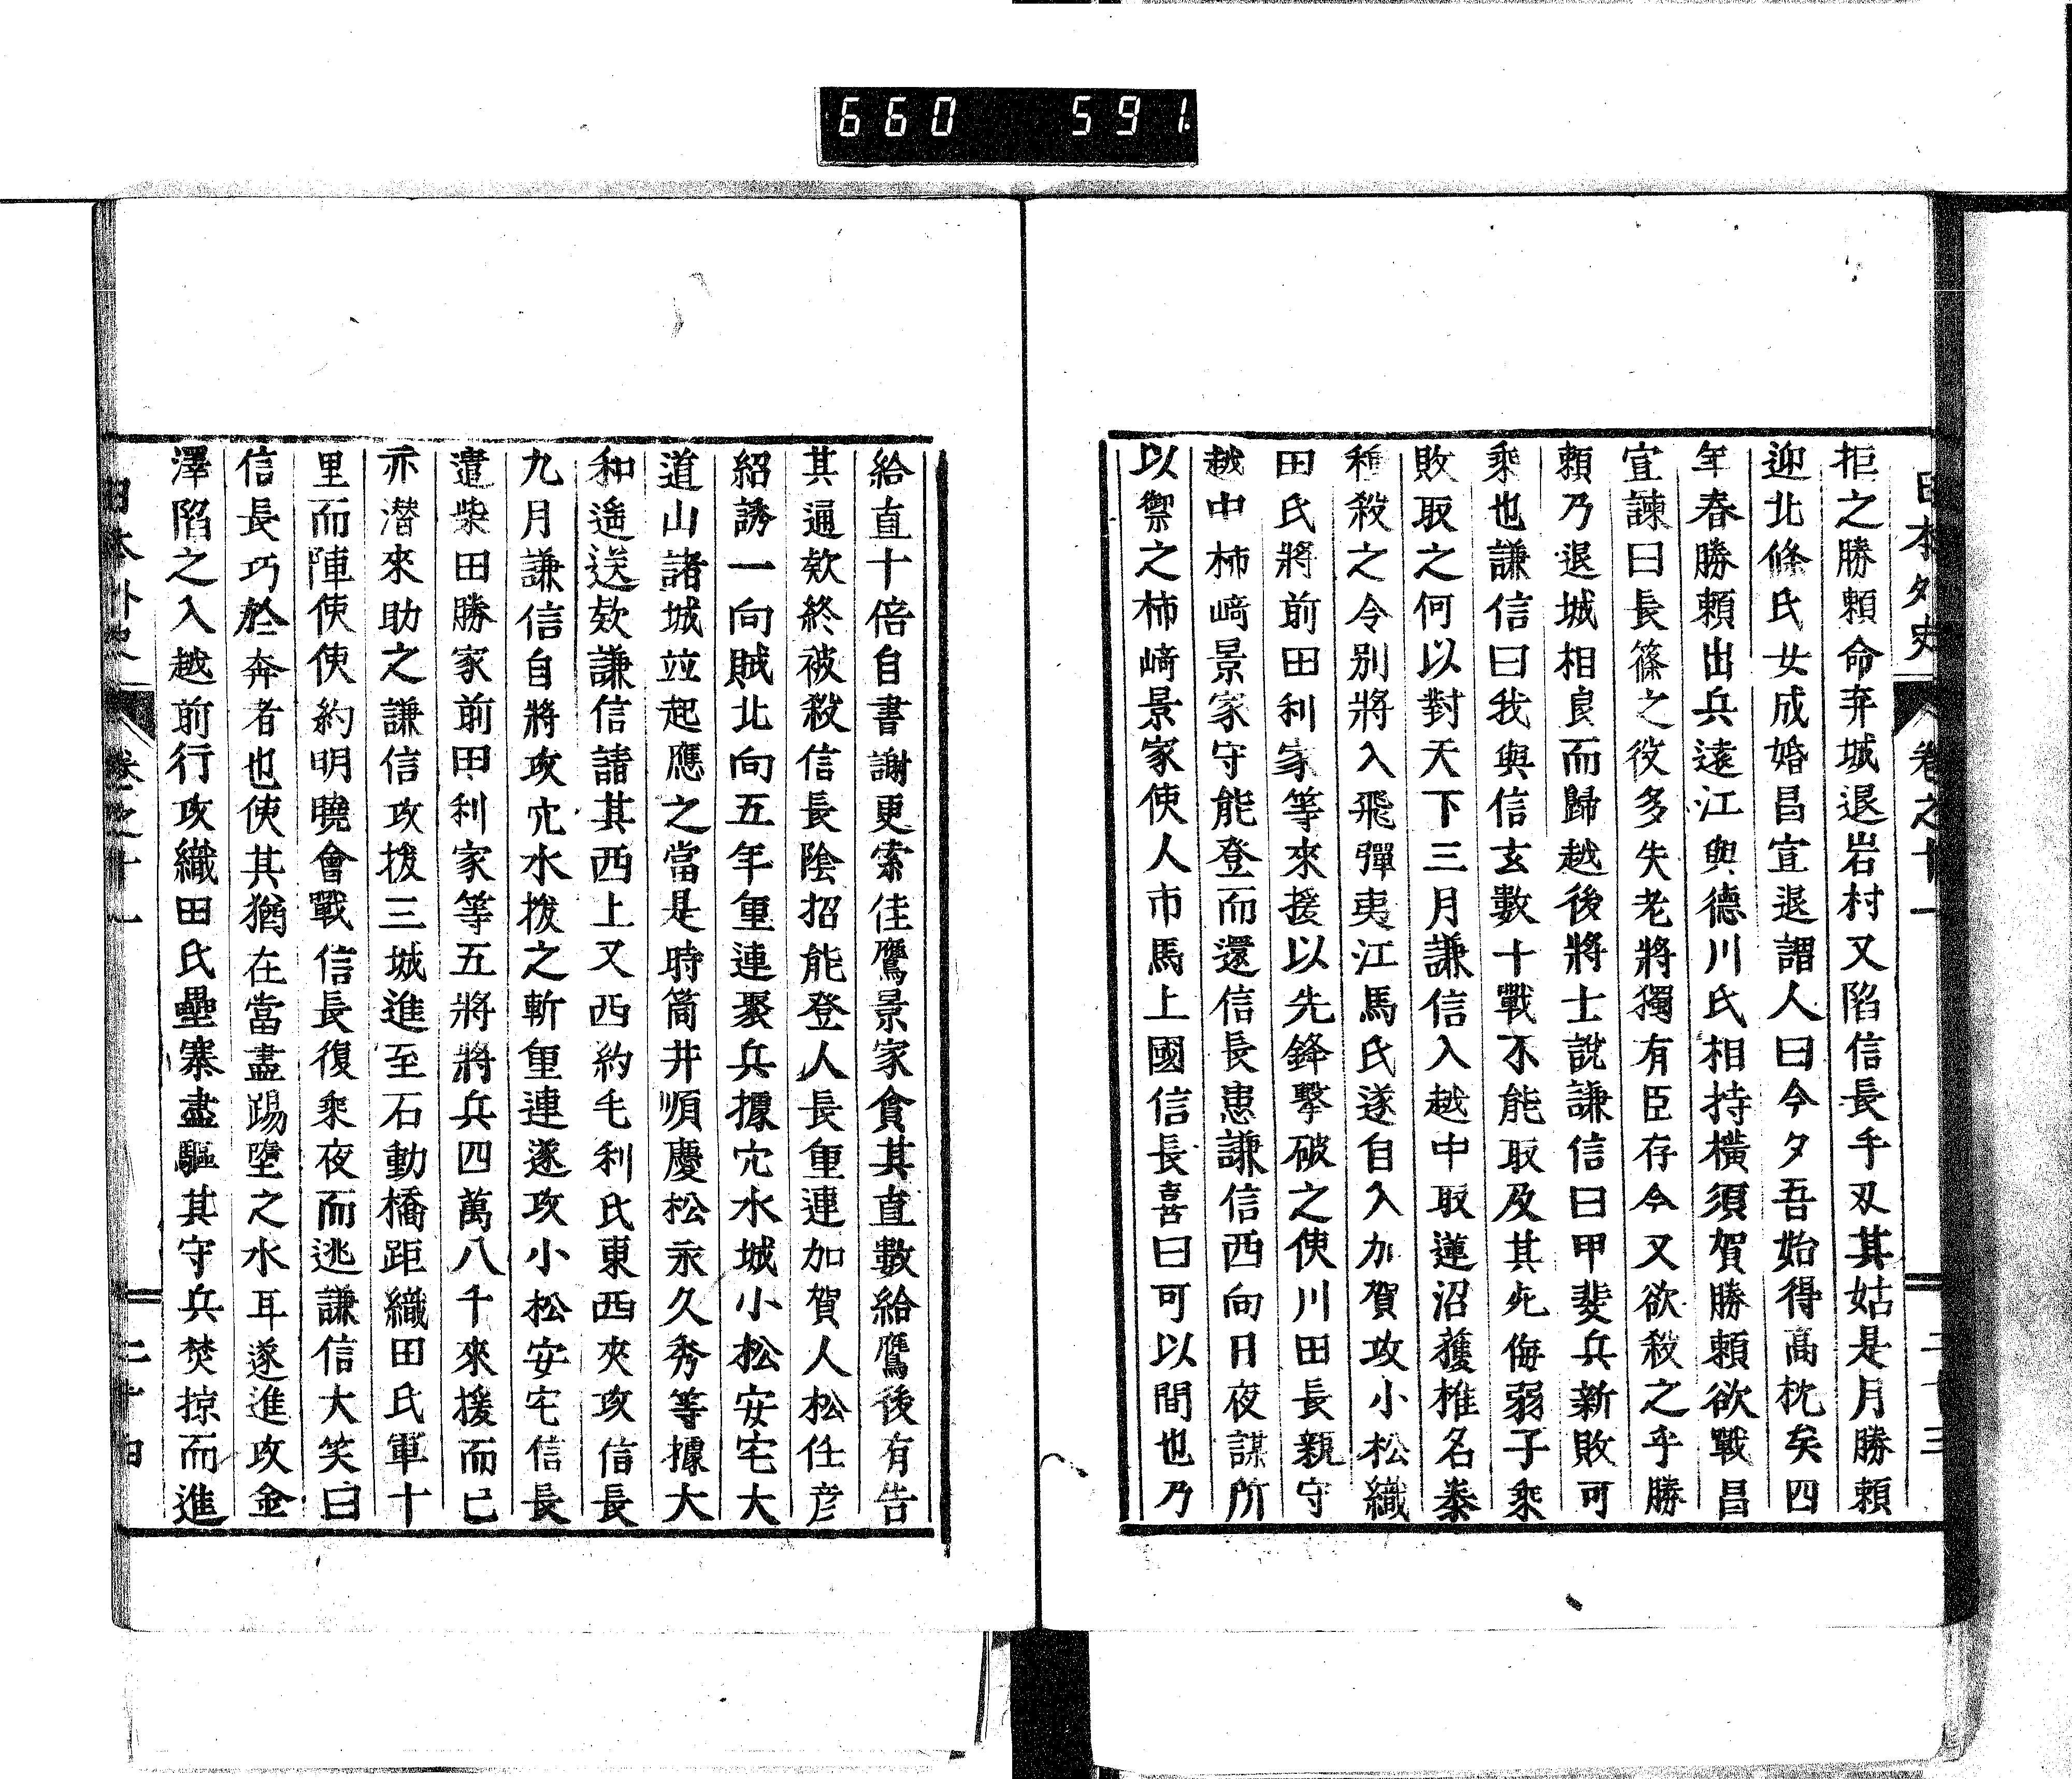 660 591
日本外史 卷之十一 二十三
拒之勝賴命弃城退岩村又陷信長手刄其姑是月勝賴
迎北條氏女成婚昌宜退謂人曰今夕吾始得高枕矣四
年春勝賴出兵遠江與德川氏相持橫須賀勝賴欲戰昌
宜諫曰長篠之役多失老將獨有臣存今又欲殺之乎勝
賴乃退城相良而歸越後將士說謙信曰甲斐兵新敗可
乘也謙信曰我與信玄數十戰不能取及其死侮弱子乘
敗取之何以對天下三月謙信入越中取蓮沼獲椎名泰
種殺之令別將入飛彈夷江馬氏遂自入加賀攻小松織
田氏將前田利家等來援以先鋒擊破之使川田長親守
越中柿﨑景家守能登而還信長患謙信西向日夜謀所
以禦之柿﨑景家使人市馬上國信長喜曰可以間也乃
給直十倍自書謝更索佳鷹景家貪其直數給鷹後有告
其通欵終被殺信長陰招能登人長重連加賀人松任彦
紹誘一向賊北向五年重連聚兵據穴水城小松安宅大
道山諸城竝起應之當是時筒井順慶松永久秀等據大
和遙送欵謙信請其西上又西約毛利氏東西夾攻信長
九月謙信自將攻穴水拔之斬重連遂攻小松安宅信長
遣柴田勝家前田利家等五將將兵四萬八千來援而已
亦潛來助之謙信攻拔三城進至石動橋距織田氏軍十
里而陣使使約明曉會戰信長復乘夜而逃謙信大笑曰
信長巧於奔者也使其猶在當盡踢墮之水耳遂進攻金
澤陷之入越前行攻織田氏壘寨盡驅其守兵焚掠而進
日本外史 卷之十一 二十四